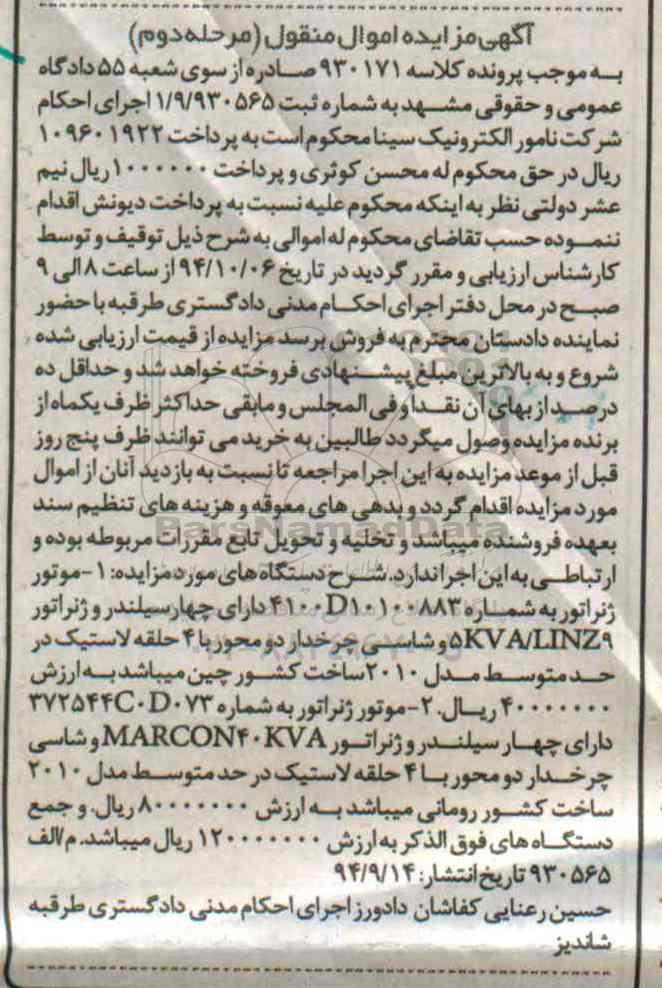 آگهی مزایده اموال منقول (مرحله دوم)
به موجب پرونده کلاسه ۹۳۰۱۷۱ صادره از سوی شعبه ۵۵ دادگاه
عمومی و حقوقی مشهد به شماره ثبت ۱/۹/۹۳۰۵۶۵ اجرای احکام
شرکت نامور الکترونیک سینا محکوم است به پرداخت ۱۰۹۶۰۱۹۲۲
ریال در حق محکوم له محسن کوثری و پرداخت ۱۰۰۰۰۰۰ ریال نیم
عشر دولتی نظر به اینکه محکوم علیه نسبت به پرداخت دیونش اقدام
ننموده حسب تقاضای محکوم له اموالی به شرح ذیل توقیف و توسط
کارشناس ارزیابی و مقرر گردید در تاریخ ۹۴/۱۰/۰۶ از ساعت ۸ الی ۹
صبح در محل دفتر اجرای احکام مدنی دادگستری طرقبه با حضور
نماینده دادستان محترم به فروش برسد مزایده از قیمت ارزیابی شده
شروع و به بالاترین مبلغ پیشنهادی فروخته خواهد شد و حداقل ده
درصد از بهای آن نقدا و فی المجلس و مابقی حداکثر ظرف یکماه از
برنده مزایده وصول میگردد طالبین به خرید می توانند ظرف پنج روز
قبل از موعد مزایده به این اجرا مراجعه تا نسبت به بازدید آنان از اموال
مورد مزایده اقدام گردد و بدهی های معوقه و هزینه های تنظیم سند
بعهده فروشنده میباشد و تخلیه و تحویل تابع مقررات مربوطه بوده و
ارتباطی به این اجرا ندارد. شرح دستگاه های مورد مزایده: ۱-موتور
ژنراتور به شماره ۴۱۰۰D۱۰۱۰۰۸۸۳ دارای چهار سیلندر و ژنراتور
۵KVA/LINZ۹ و شاسی چرخدار دو محور با ۴ حلقه لاستیک در
حد متوسط مدل ۲۰۱۰ ساخت کشور چین میباشد به ارزش
۴۰۰۰۰۰۰۰ ریال. ۲-موتور ژنراتور به شماره ۳۷۲۵۴۴C۰D۰۷۳
دارای چهار سیلندر و ژنراتور MARCON۴۰KVA و شاسی
چرخدار دو محور با ۴ حلقه لاستیک در حد متوسط مدل ۲۰۱۰
ساخت کشور رومانی میباشد به ارزش ۸۰۰۰۰۰۰۰ ریال. و جمع
دستگاه های فوق الذکر به ارزش ۱۲۰۰۰۰۰۰۰ ریال میباشد. م/الف
۹۳۰۵۶۵ تاریخ انتشار: ۹۴/۹/۱۴
حسین رعنایی کفاشان دادورز اجرای احکام مدنی دادگستری طرقبه
شاندیز
ParsNamadData